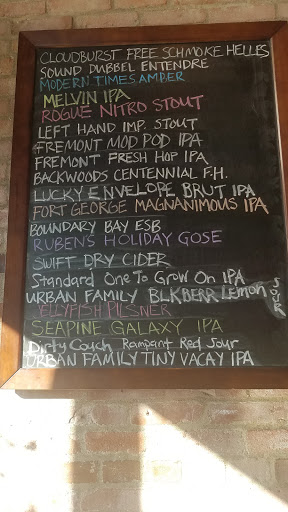 CLOUDBURST FREE SCHMOKE HELLES
SOUND DUBBEL ENTENDRE
MODERN TIMES AMBER
MELVIN IPA
ROGUE NITRO STOUT
LEFT HAND IMP. STOUT
FREMONT MOD POD IPA
FREMONT FRESH HOP IPA
BACKWOODS CENTENNIAL F.H.
LUCKY ENVELOPE BRUT IPA
FORT GEORGE MAGNANIMOUS IPA
BOUNDARY BAY ESB
RUBENS HOLIDAY GOSE
SWIFT DRY CIDER
Standard One To Grow On IPA
URBAN FAMILY BLKBERR LEMON SOUR
JELLYFISH PILSNER
SEAPINE GALAXY IPA
Dirty Couch Rampant Red Sour
URBAN FAMILY TINY VACAY IPA